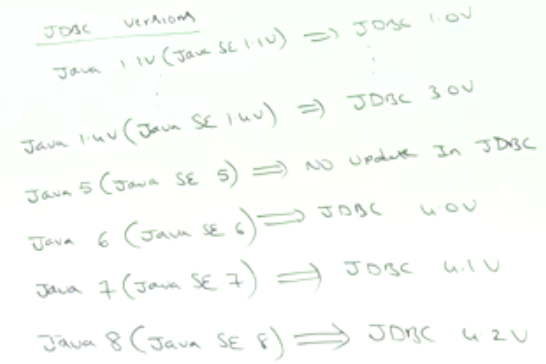 JDBC versions
Java 1.1V (Java SE 1.1V) => JDBC 1.0V
Java 1.4V (Java SE 1.4V) => JDBC 3.0V
Java 5 (Java SE 5) => NO update In JDBC
Java 6 (Java SE 6) => JDBC 4.0V
Java 7 (Java SE 7) => JDBC 4.1V
Java 8 (Java SE 8) => JDBC 4.2V